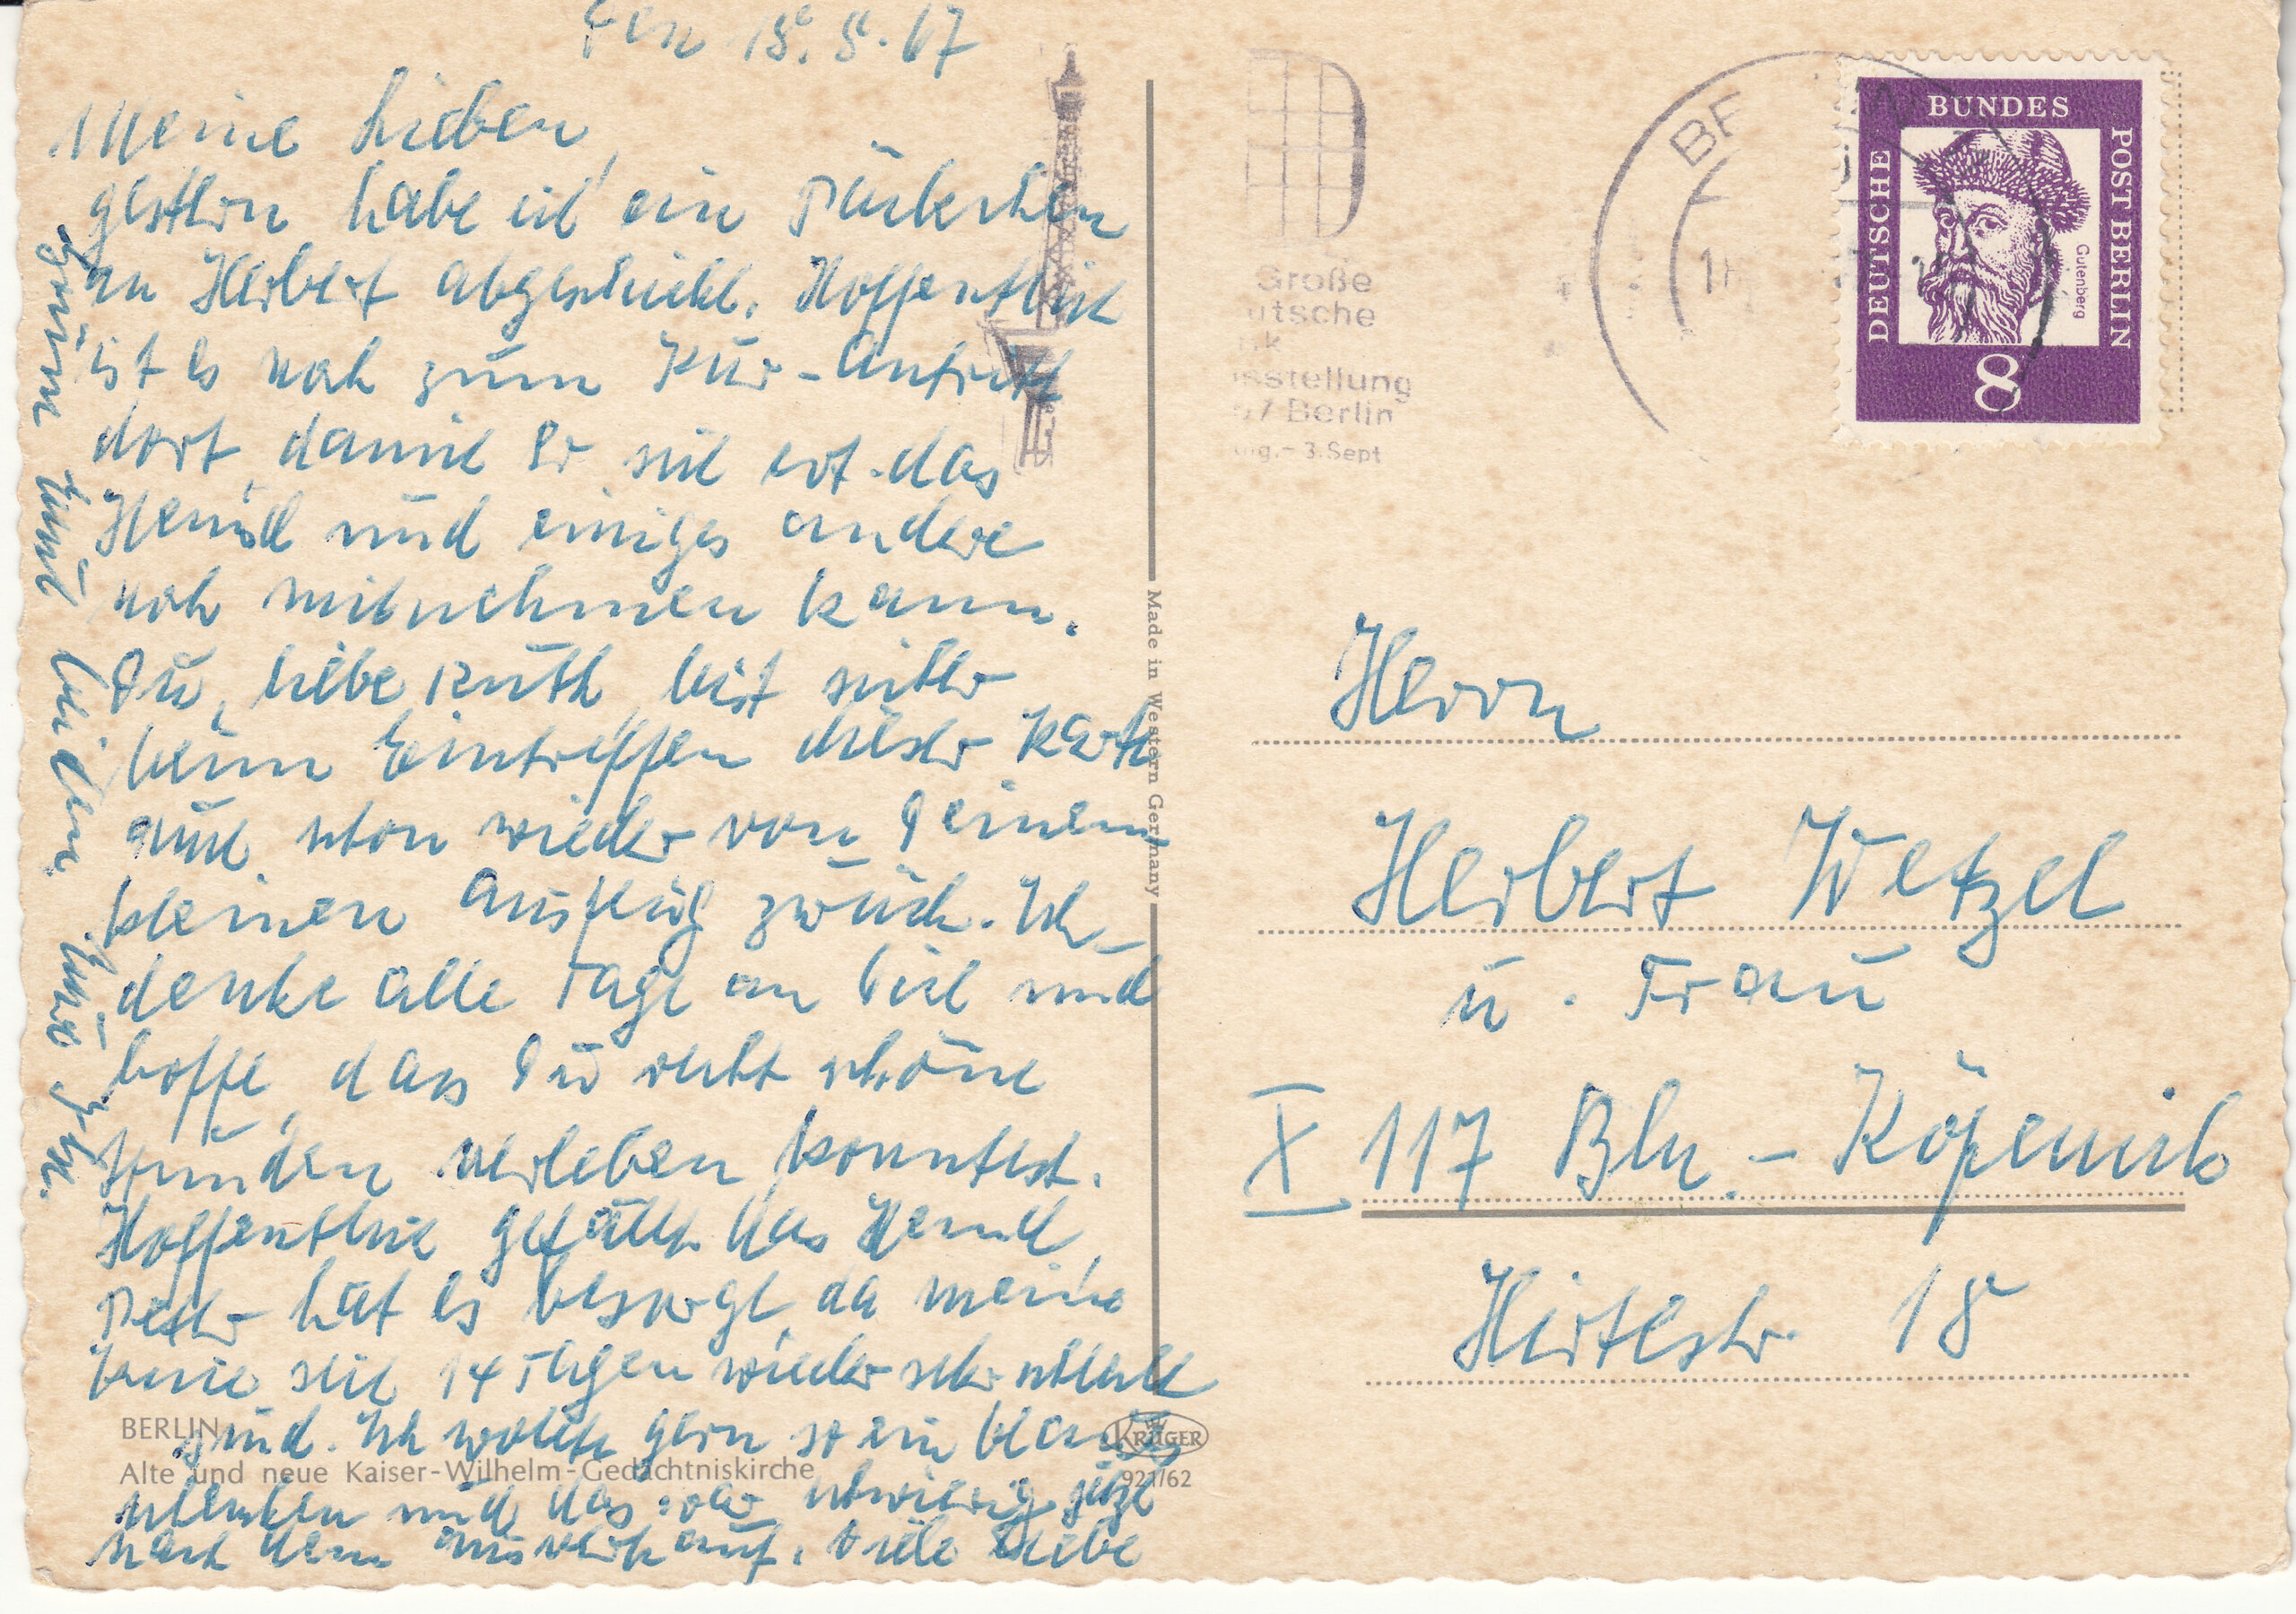 Den 15.8.67
Meine Lieben,
gestern habe ich ein Päckchen
an Herbert abgeschickt. Hoffentlich
ist es noch zum Kur-Antritt
dort, damit Er sich evt. das
Hemd und einiges andere
noch mitnehmen kann.
Du, liebe Ruth bist sicher
beim Eintreffen dieser Karte
auch schon wieder von Deinem
kleinen Ausflug zurück. Ich
denke alle Tage an Dich und
hoffe, dass Du recht schöne
Stunden verleben konntest.
Hoffentlich gefällt das Hemd,
Peter hat es besorgt, da meine
Beine seit 14 Tagen wieder sehr schlecht
sind. Ich wollte gern so ein blaues
schenken und das war schwierig jetzt
nach dem Ausverkauf. Viele liebe
Grüsse Euch beiden
BERLIN
Alte und neue Kaiser-Wilhelm-Gedächtniskirche
KRÜGER
921/62
Made in Western Germany
Große
utsche
sstellung
67 Berlin
ug.-3.Sept
DEUTSCHE
BUNDES
POST BERLIN
Gutenberg
8
Herrn
Herbert Wetzel
u. Frau
X 117 Bln.-Köpenick
Hirtestr. 18